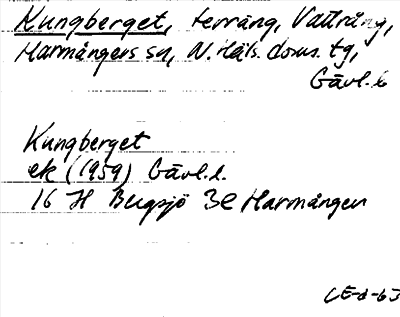 Kungberget, terräng, Vattrång,
Harmångers sn, N. Häls. doms. tg,
Gävl. l.
Kungberget
ek (1959) Gävl. l.
16 H Bergsjö 3e Harmånger
CE-d-63